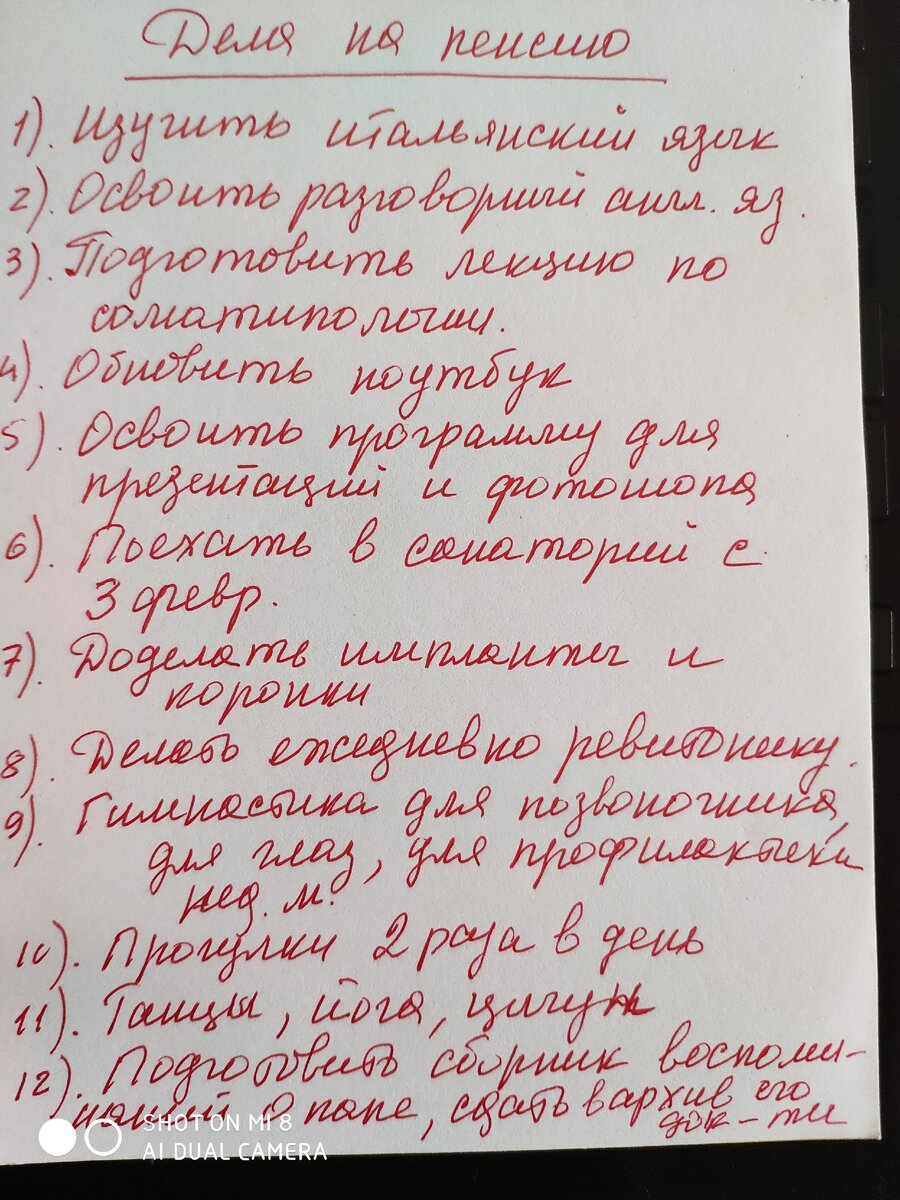 Дела на пенсию
1). Изучить итальянский язык
2). Освоить разговорный англ. яз.
3). Подготовить лекцию по
соматипологии.
4). Обновить ноутбук
5). Освоить программу для
презентаций и фотошопа
6). Поехать в санаторий с
3 февр.
7). Доделать импланты и
коронки
8). Делать ежедневно ревитонику.
9). Гимнастика для позвоночника,
для глаз, для профилактики
нед. м.
10). Прогулки 2 раза в день
11). Танцы, йога, цигун
12). Подготовить сборник воспоми-
наний о папе, сдать в архив его
док-ты
SHOT ON MI 8
AI DUAL CAMERA